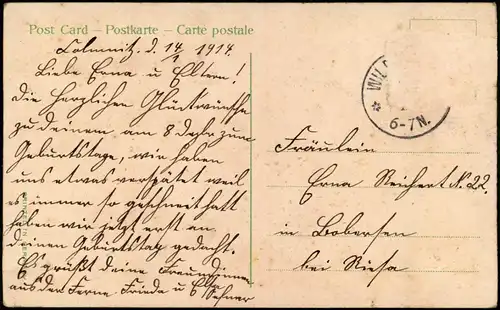 Post Card – Postkarte – Carte postale
Colmnitz. d. 14/1 1914.
Liebe Erna u Eltern!
die herzlichen Glückwünsche
zu deinem am 8 Jahr zum
Geburtstage, wir haben
uns etwas verspätet weil
es immer so geschneit hatt
haben wir jetzt erst an
deinen Geburtstag gedacht.
Es grüßt deine Freundinnen
aus der Ferne. Frieda u
WIL
* 6-7N.
Fräulein
Erna Reichert N. 22.
in Bobersen
bei Riesa